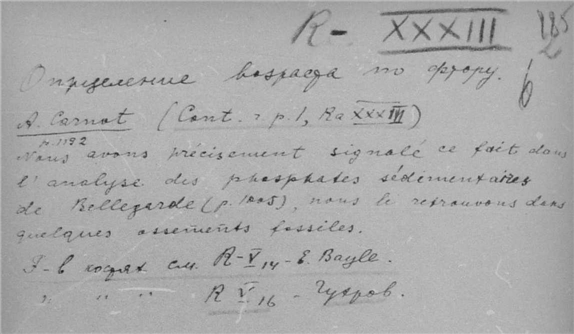 R- XXXIII 185
2
б
Определение возраста по фтору.
A. Carnot (Cont. r p. 1, Ra XXXIII)
p. 1192
Nous avons précisement signalé ce fait dans
l'analyse des phosphates sédimentaires
de Bellegarde (p. 1005), nous le retrouvons dans
quelques ossements fossiles.
F-в костях см. R-V 14 - E. Bayle.
" " " R V 16 -